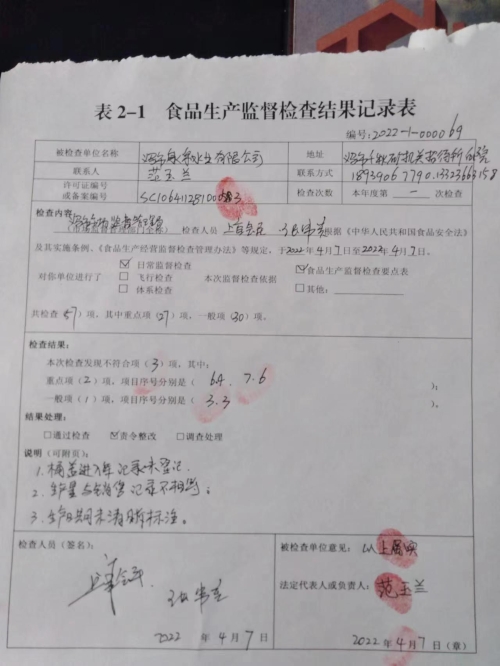 表 2-1 食品生产监督检查结果记录表
编号:2022-1-000069
被检查单位名称 泉水业有限公司 地址
联系人 范玉兰 联系方式
许可证编号
或备案编号 检查次数 本年度第一次检查
检查内容:
(市场监督管理部门全称) 检查人员 根据《中华人民共和国食品安全法》
及其实施条例、《食品生产经营监督检查管理办法》等规定,于2022年4月7日至2022年4月7日,
对你单位进行了 ☑日常监督检查 □飞行检查 □体系检查 本次监督检查依据 ☑食品生产监督检查要点表 □其他:
共检查(57)项,其中重点项(27)项,一般项(30)项。
检查结果:
本次检查发现不符合项(3)项,其中:
重点项(2)项,项目序号分别是(6.4、7.6);
一般项(1)项,项目序号分别是(3.3)。
结果处理:
□通过检查 ☑责令整改 □调查处理
说明(可附页):
1.桶盖进入库记录未登记.
2.生产量与销售记录不相符;
3.生产日期未清晰标注。
检查人员(签名):
被检查单位意见:以上属实
法定代表人或负责人:范玉兰
2022 年 4 月 7 日
2022 年 4 月 7 日(章)